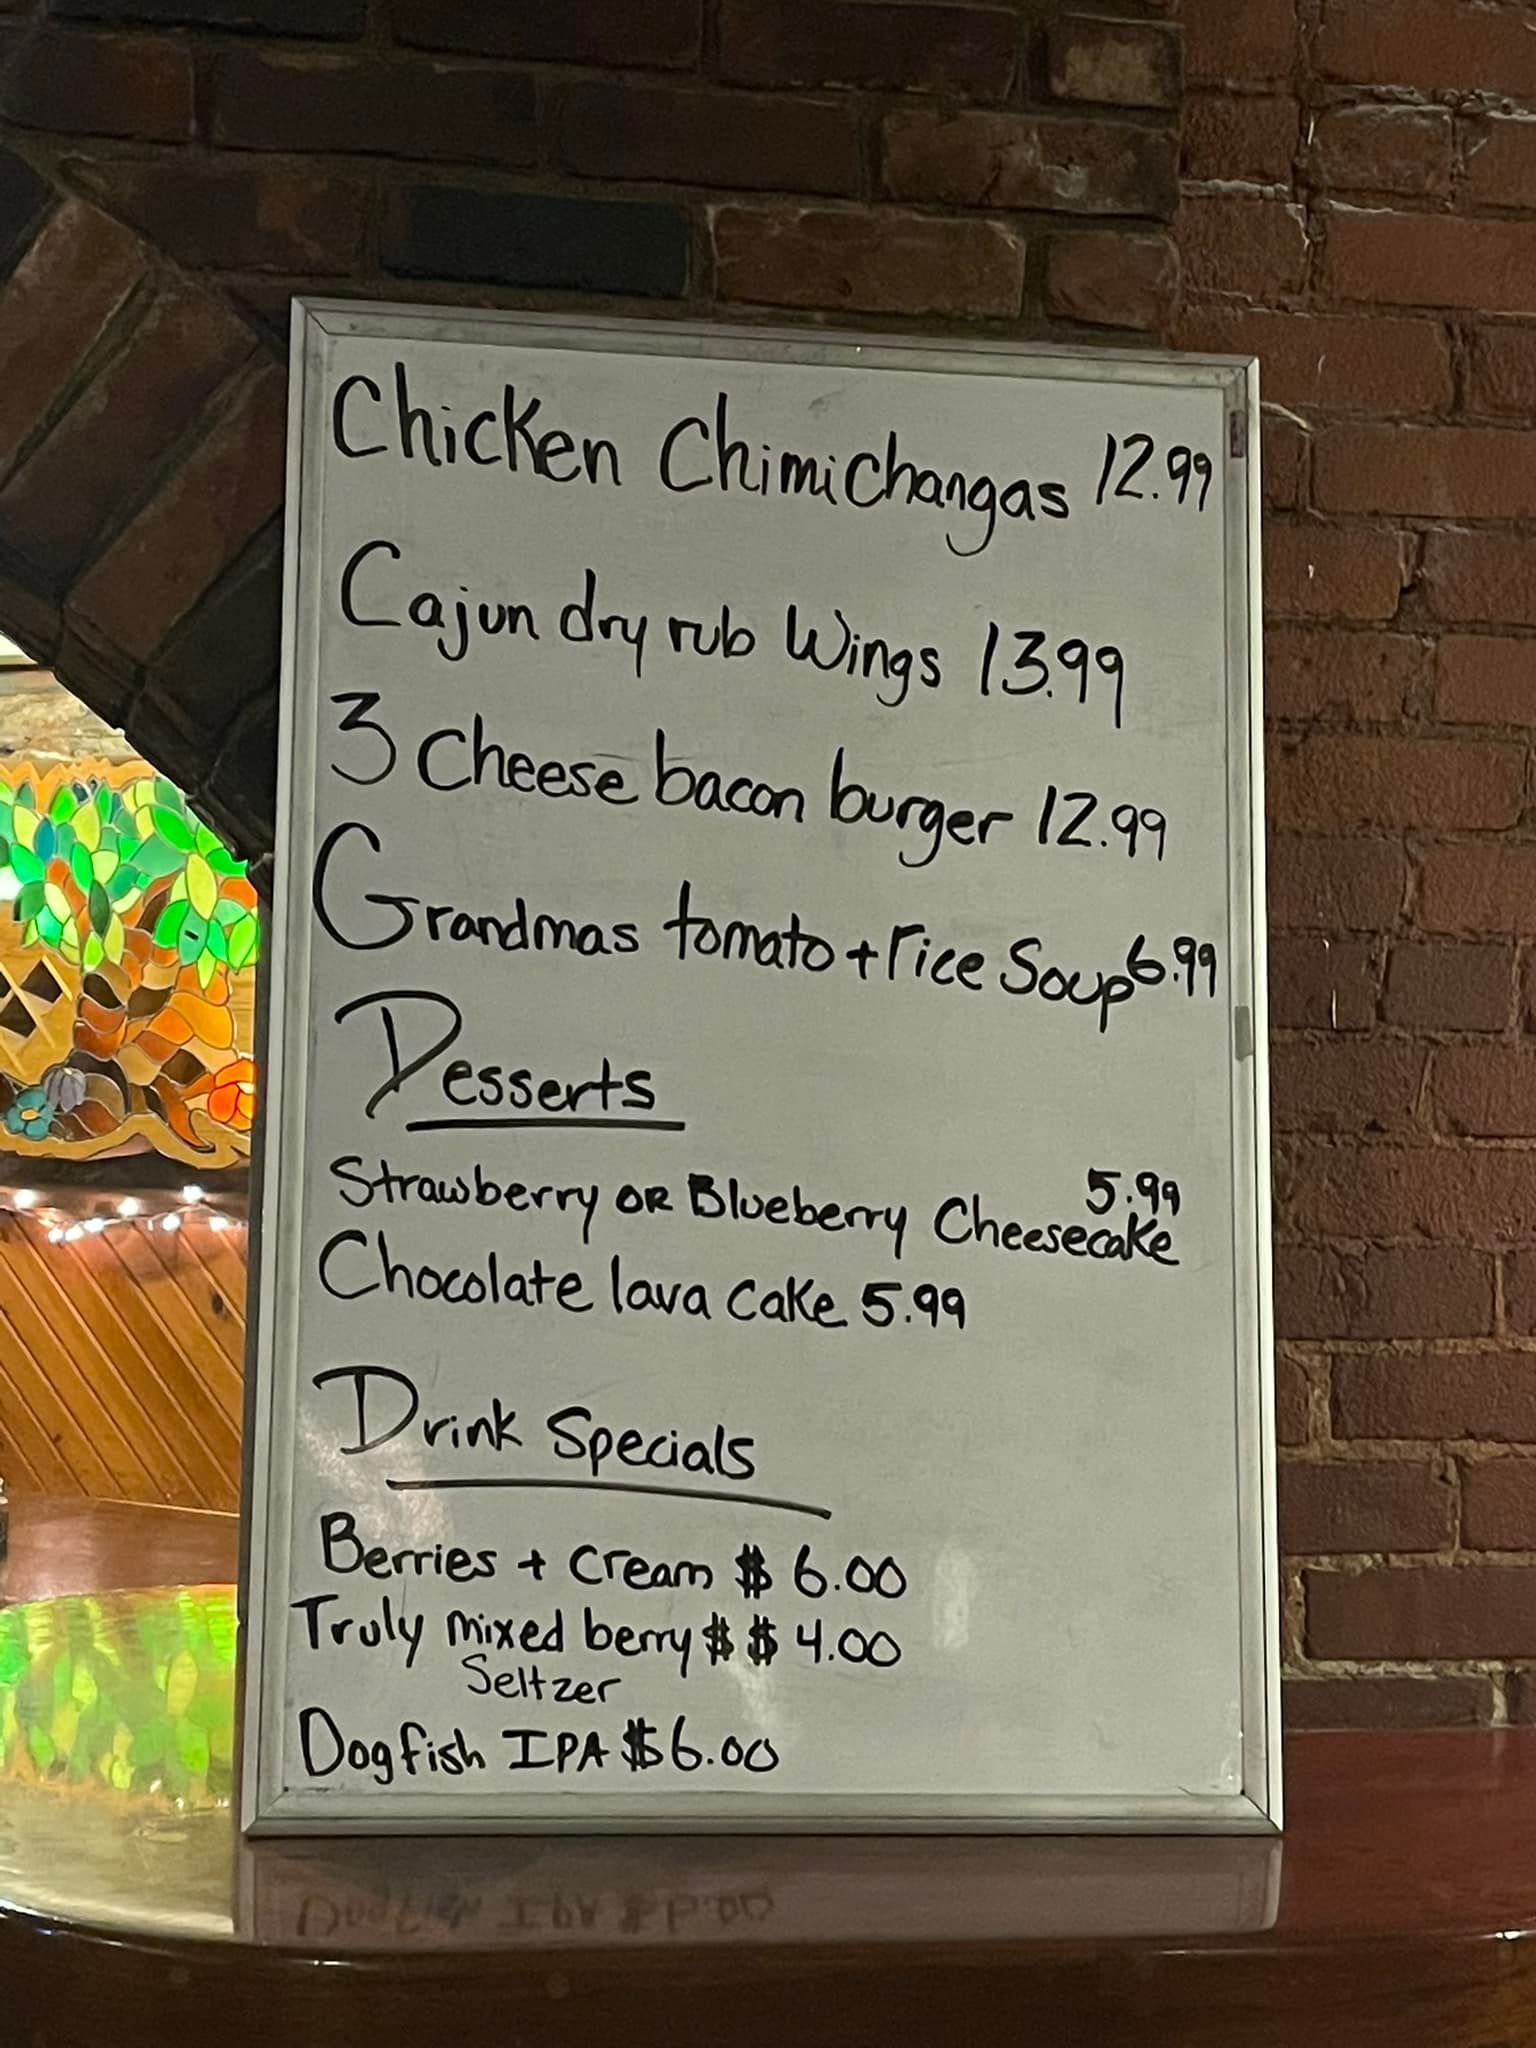 Chicken Chimichangas 12.99
Cajun dry rub Wings 13.99
3 Cheese bacon burger 12.99
Grandmas tomato + rice Soup 6.99
Desserts
Strawberry OR Blueberry Cheesecake 5.99
Chocolate lava cake 5.99
Drink Specials
Berries + cream $ 6.00
Truly mixed berry $ $ 4.00
Seltzer
Dogfish IPA $6.00